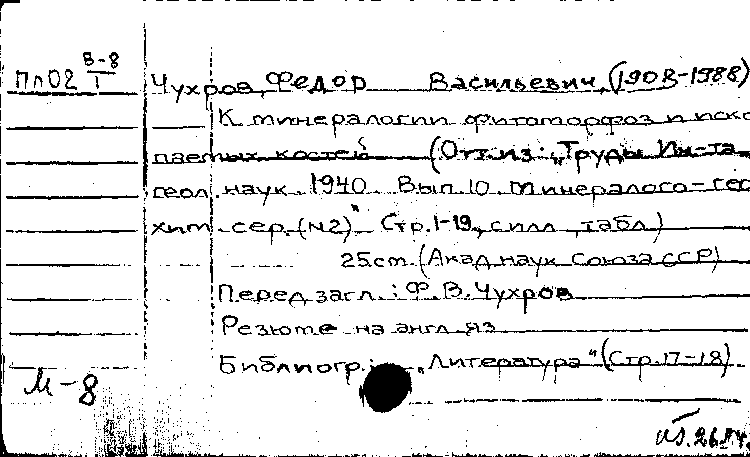 В-8
ПлО2 Т
Чухров, Федор Васильевич, (1908-1988)
К минералогии фитоморфоз и иско
паемых костей (Отт.из: „Труды Ин-та
геол. наук. 1940. Вып.10. Минералого-гео
хим. сер. (№2)" Стр.1-19, с илл., табл.)
25см. (Акад. наук Союза ССР)
Перед загл.: Ф. В. Чухров
Резюме на англ. яз.
Библиогр.: „Литература" (Стр.17-18)
М-8